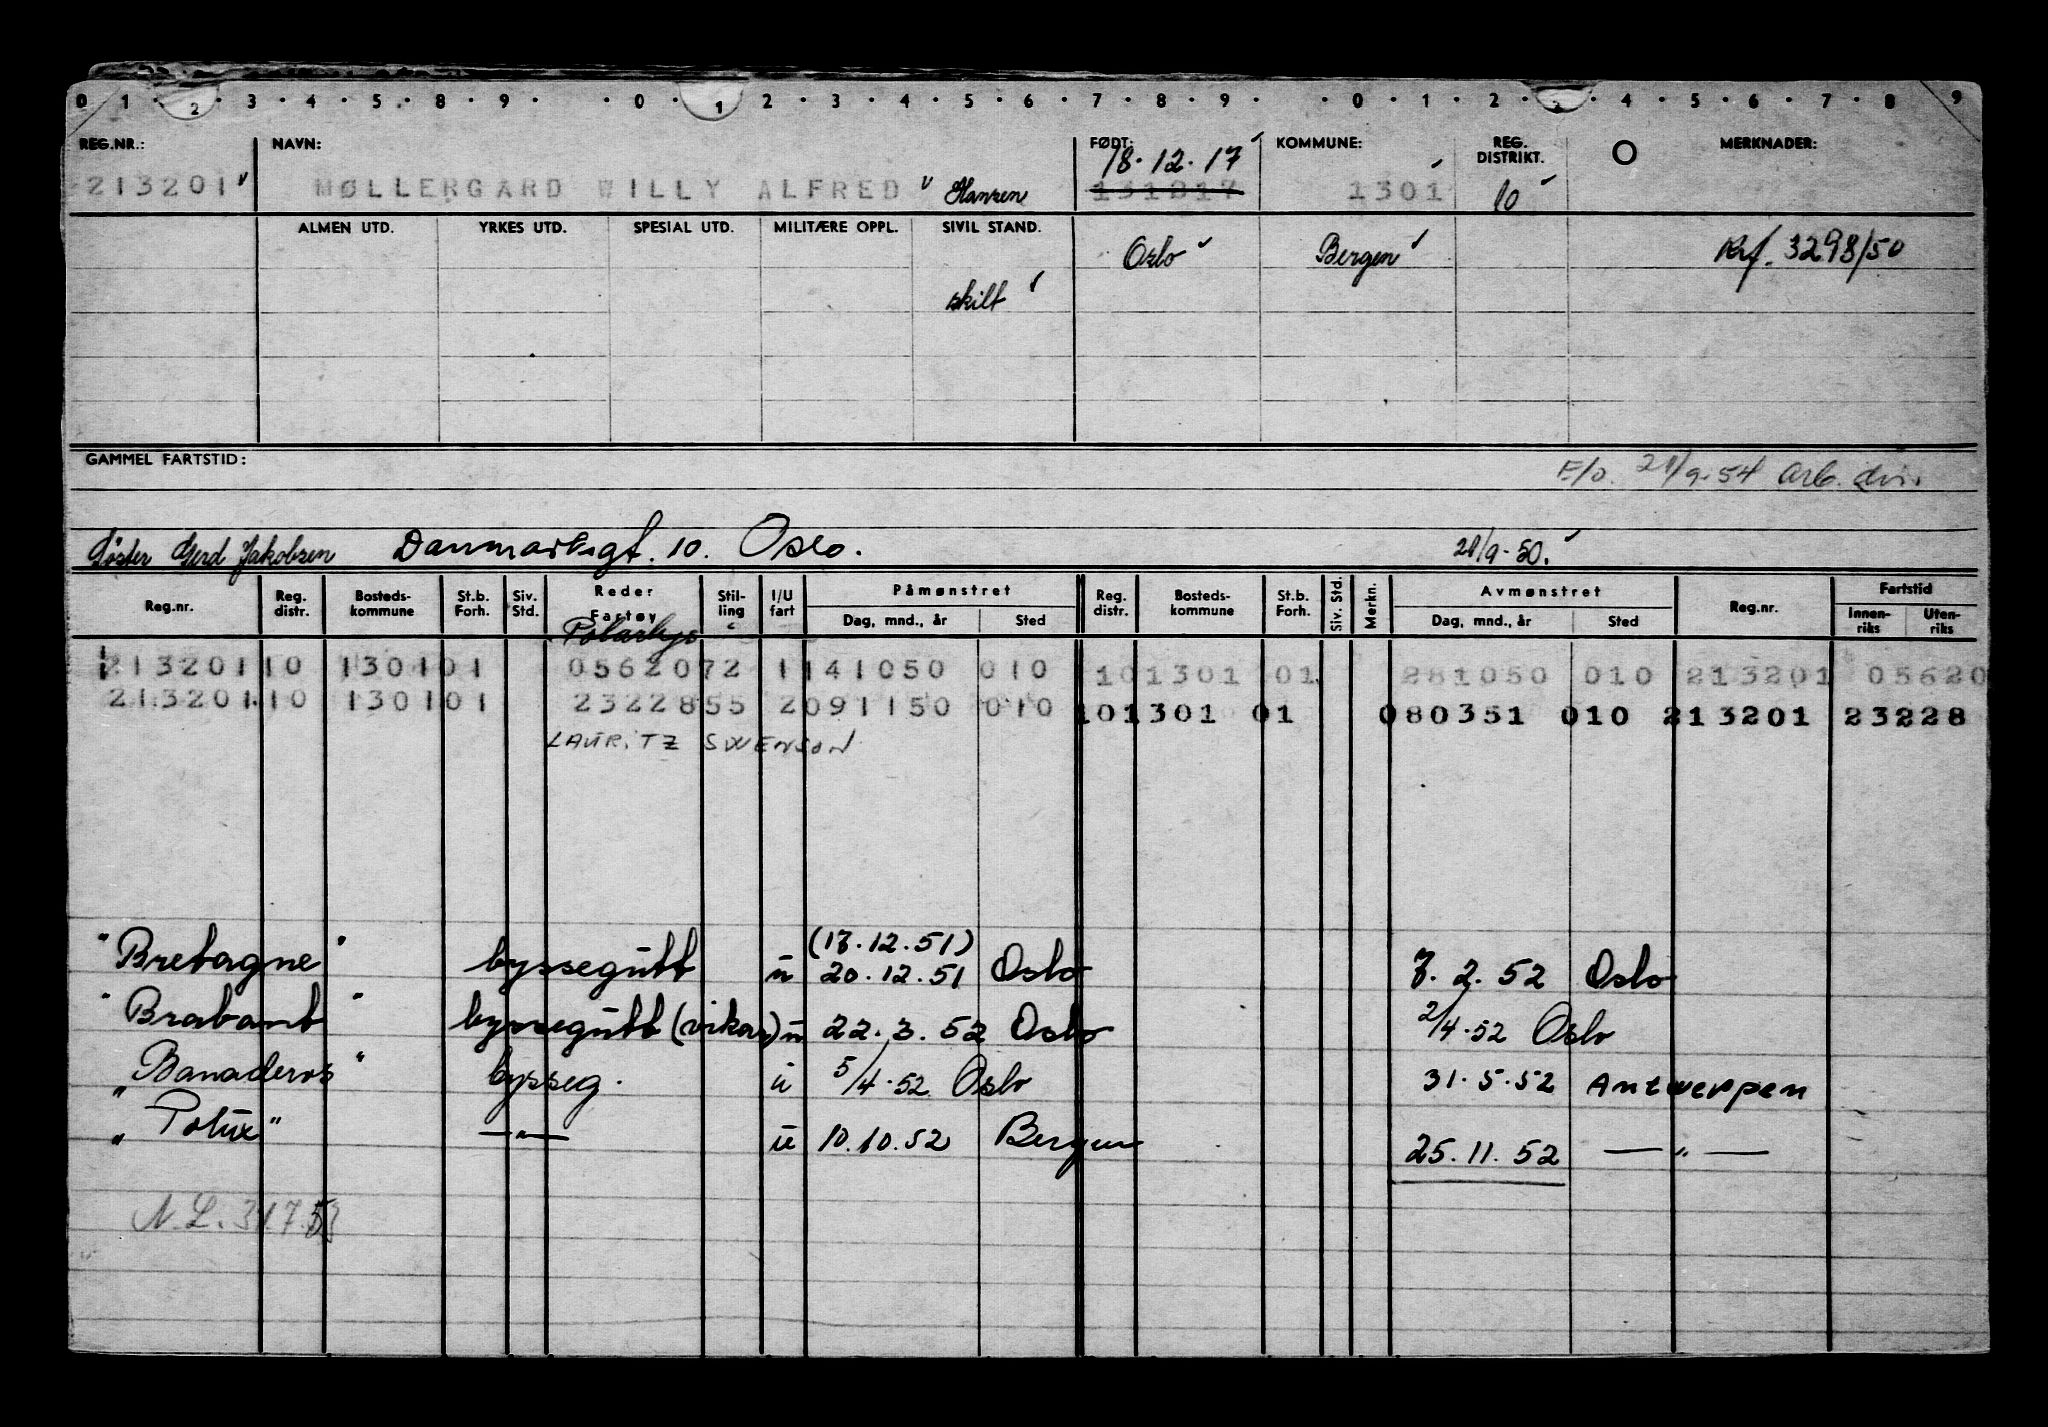 0 1 · 2 · 3 · 4 · 5 · 8 · 9 · · 0 · 1 2 · 3 · 4 · 5 · 6 · 7 · 8 · 9 · · 0 · 1 · 2 · 3 · 4 · 5 · 6 · 7 · 8 9
REG.NR.: NAVN: FØDT: KOMMUNE: REG. DISTRIKT. O MERKNADER:
18.12.17
213201 MØLLERGARD WILLY ALFRED Hansen 131217 1301 10
ALMEN UTD. YRKES UTD. SPESIAL UTD. MILITÆRE OPPL. SIVIL STAND.
Oslo Bergen Krf. 3298/50
skilt
GAMMEL FARTSTID:
F/o. 21/9.54 Arb. dir.
Søster Gerd Jakobsen Danmarksgt. 10. Oslo. 21/9.50.
Reg.nr. Reg. distr. Bosteds- kommune St.b. Forh. Siv. Std. Reder Fartøy Stil- ling I/U fart Påmønstret Dag, mnd., år Sted Reg. distr. Bosteds- kommune St.b. Forh. Siv. Std. Merkn. Avmønstret Dag, mnd., år Sted Reg.nr. Fartstid Innen- riks Uten- riks
Polarlys
213201 10 1301 01 05620 72 1 141050 010 10 1301 01 281050 010 213201 05620
213201 10 1301 01 23228 55 2 091150 010 10 1301 01 080351 010 213201 23228
LAURITZ SWENSON
(17.12.51)
"Bretagne" byssegutt u 20.12.51 Oslo 7.2.52 Oslo
"Brabant" byssegutt (vikar) u 22.3.52 Oslo 2/4.52 Oslo
"Banaderos" bysseg. u 5/4.52 Oslo 31.5.52 Antwerppen
"Polux" —"— u 10.10.52 Bergen 25.11.52 —"—
N.L. 317.53